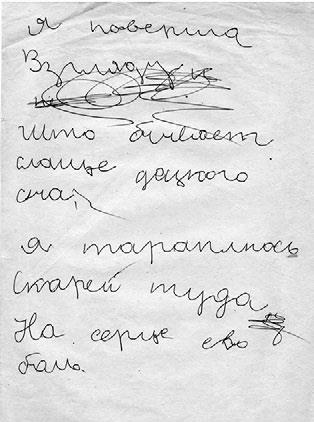 Я поверила
Взгляду
Што бывает
слаще децкого
сна,
Я тараплюсь
Скарей туда
На серце ево
баль.